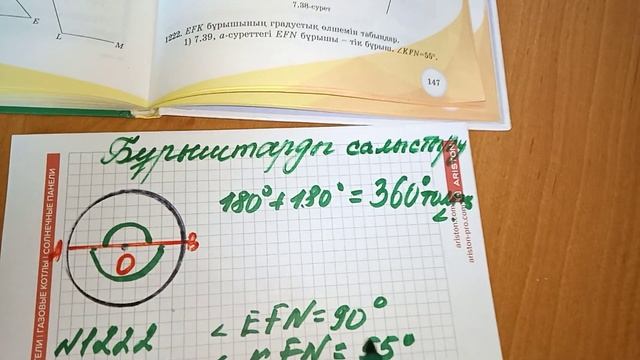 7.38-сурет
E
L
M
1222. EFK бұрышының градустық өлшемін табыңдар.
1) 7.39, a-суреттегі EFN бұрышы – тік бұрыш, ∠KFN=55°.
147
Бұрыштарды салыстыру
180°+180°=360° толық
∠
A
B
O
N1222
∠EFN=90°
FN=55°
ГАЗОВЫЕ КОТЛЫ | СОЛНЕЧНЫЕ ПАНЕЛИ
ARISTON
ariston.com
ariston-pro.com